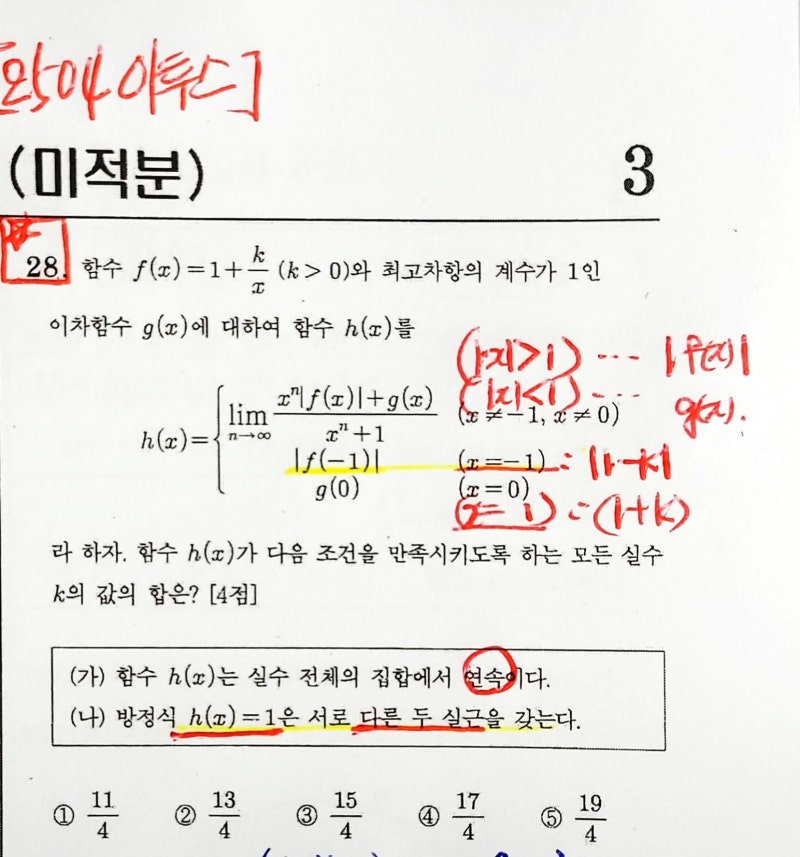 [25 04 이투스]
(미적분) 3
28. 함수 f(x)=1+k/x (k>0)와 최고차항의 계수가 1인
이차함수 g(x)에 대하여 함수 h(x)를
(|x|>1) ··· |f(x)|
(|x|<1) ··· g(x).
h(x)= { lim n→∞ (xⁿ|f(x)|+g(x))/(xⁿ+1) (x≠−1, x≠0)
|f(−1)| (x=−1) : |1−k|
g(0) (x=0)
(x=1) : (1+k)
라 하자. 함수 h(x)가 다음 조건을 만족시키도록 하는 모든 실수
k의 값의 합은? [4점]
(가) 함수 h(x)는 실수 전체의 집합에서 연속이다.
(나) 방정식 h(x)=1은 서로 다른 두 실근을 갖는다.
① 11/4 ② 13/4 ③ 15/4 ④ 17/4 ⑤ 19/4